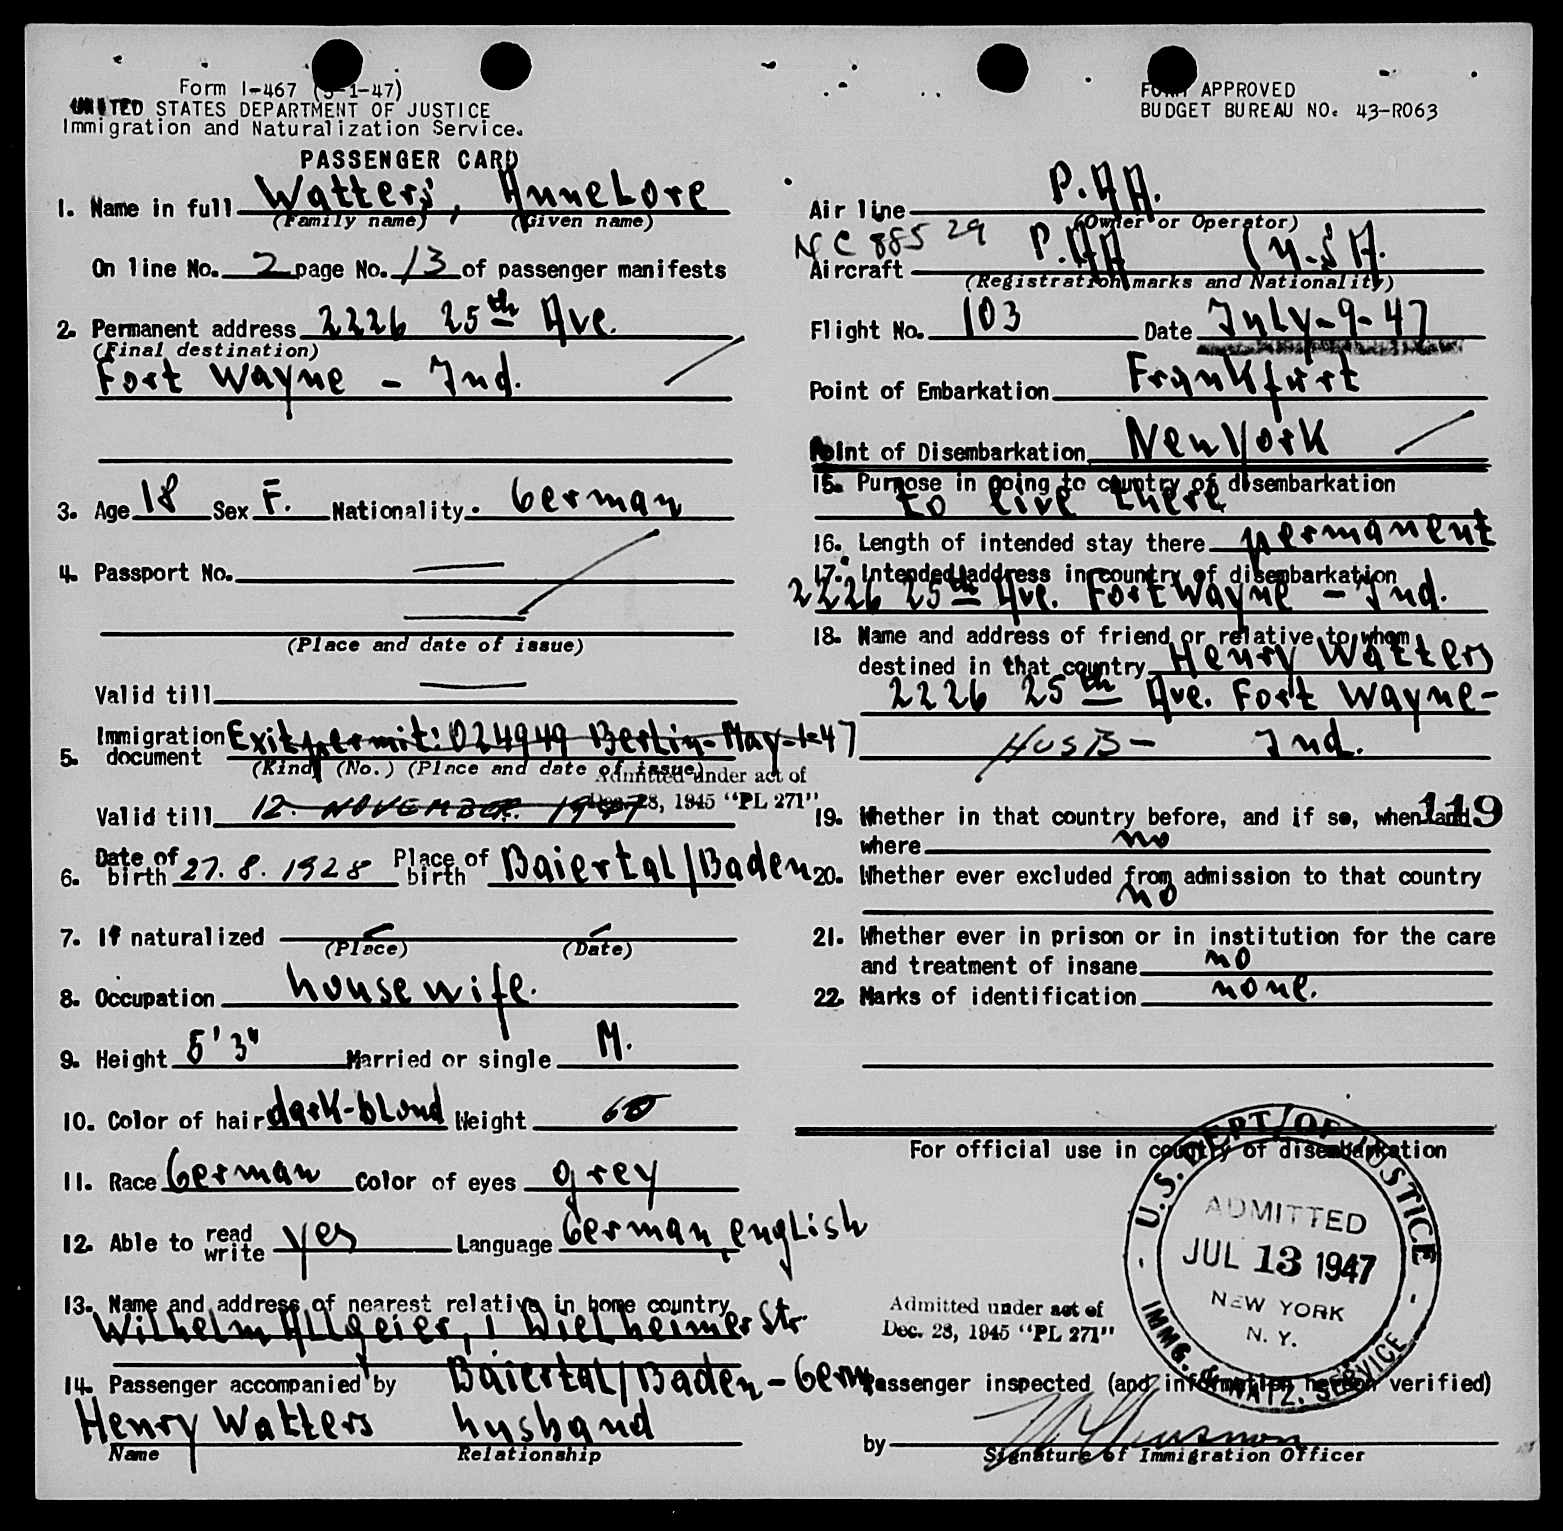 Form I-467 (5-1-47)
UNITED STATES DEPARTMENT OF JUSTICE
Immigration and Naturalization Service.
PASSENGER CARD
1. Name in full Watters, AnneLore
(Family name) (Given name)
On line No. 2 page No. 13 of passenger manifests
2. Permanent address 2226 25th Ave.
(Final destination)
Fort Wayne - Ind.
3. Age 18 Sex F. Nationality German
4. Passport No. —
(Place and date of issue)
Valid till —
5. Immigration document Exitpermit: 024949 Berlin-May-1-47
(Kind) (No.) (Place and date of issue)
Admitted under act of
Dec. 28, 1945 "PL 271"
Valid till 12. NOVEMBER. 1947
6. Date of birth 27.8.1928 Place of birth Baiertal/Baden
7. If naturalized
(Place) (Date)
8. Occupation housewife.
9. Height 5'3" Married or single M.
10. Color of hair dark-blond Weight
11. Race German Color of eyes grey
12. Able to read write yes Language German, english
13. Name and address of nearest relative in home country
Wilhelm Allgeier, 1 Dielheimer Str.
Baiertal/Baden - Germ.
14. Passenger accompanied by
Henry Watters husband
Name Relationship
FORM APPROVED
BUDGET BUREAU NO. 43-R063
Air line P.A.A.
(Owner or Operator)
NC 88529
Aircraft P.AA U.S.A.
(Registration marks and Nationality)
Flight No. 103 Date July-9-47
Point of Embarkation Frankfurt
Point of Disembarkation New York
15. Purpose in going to country of disembarkation
to live there
16. Length of intended stay there permanent
17. Intended address in country of disembarkation
2226 25th Ave. Fort Wayne - Ind.
18. Name and address of friend or relative to whom
destined in that country Henry Watters
2226 25th Ave. Fort Wayne-
HUSB - Ind.
119
19. Whether in that country before, and if so, when and
where no
20. Whether ever excluded from admission to that country
no
21. Whether ever in prison or in institution for the care
and treatment of insane no
22. Marks of identification none.
For official use in country of disembarkation
U.S. DEPT. OF JUSTICE
ADMITTED
JUL 13 1947
NEW YORK
N. Y.
IMMG. & NATZ. SERVICE
Admitted under act of
Dec. 28, 1945 "PL 271"
Passenger inspected (and information hereon verified)
by
Signature of Immigration Officer